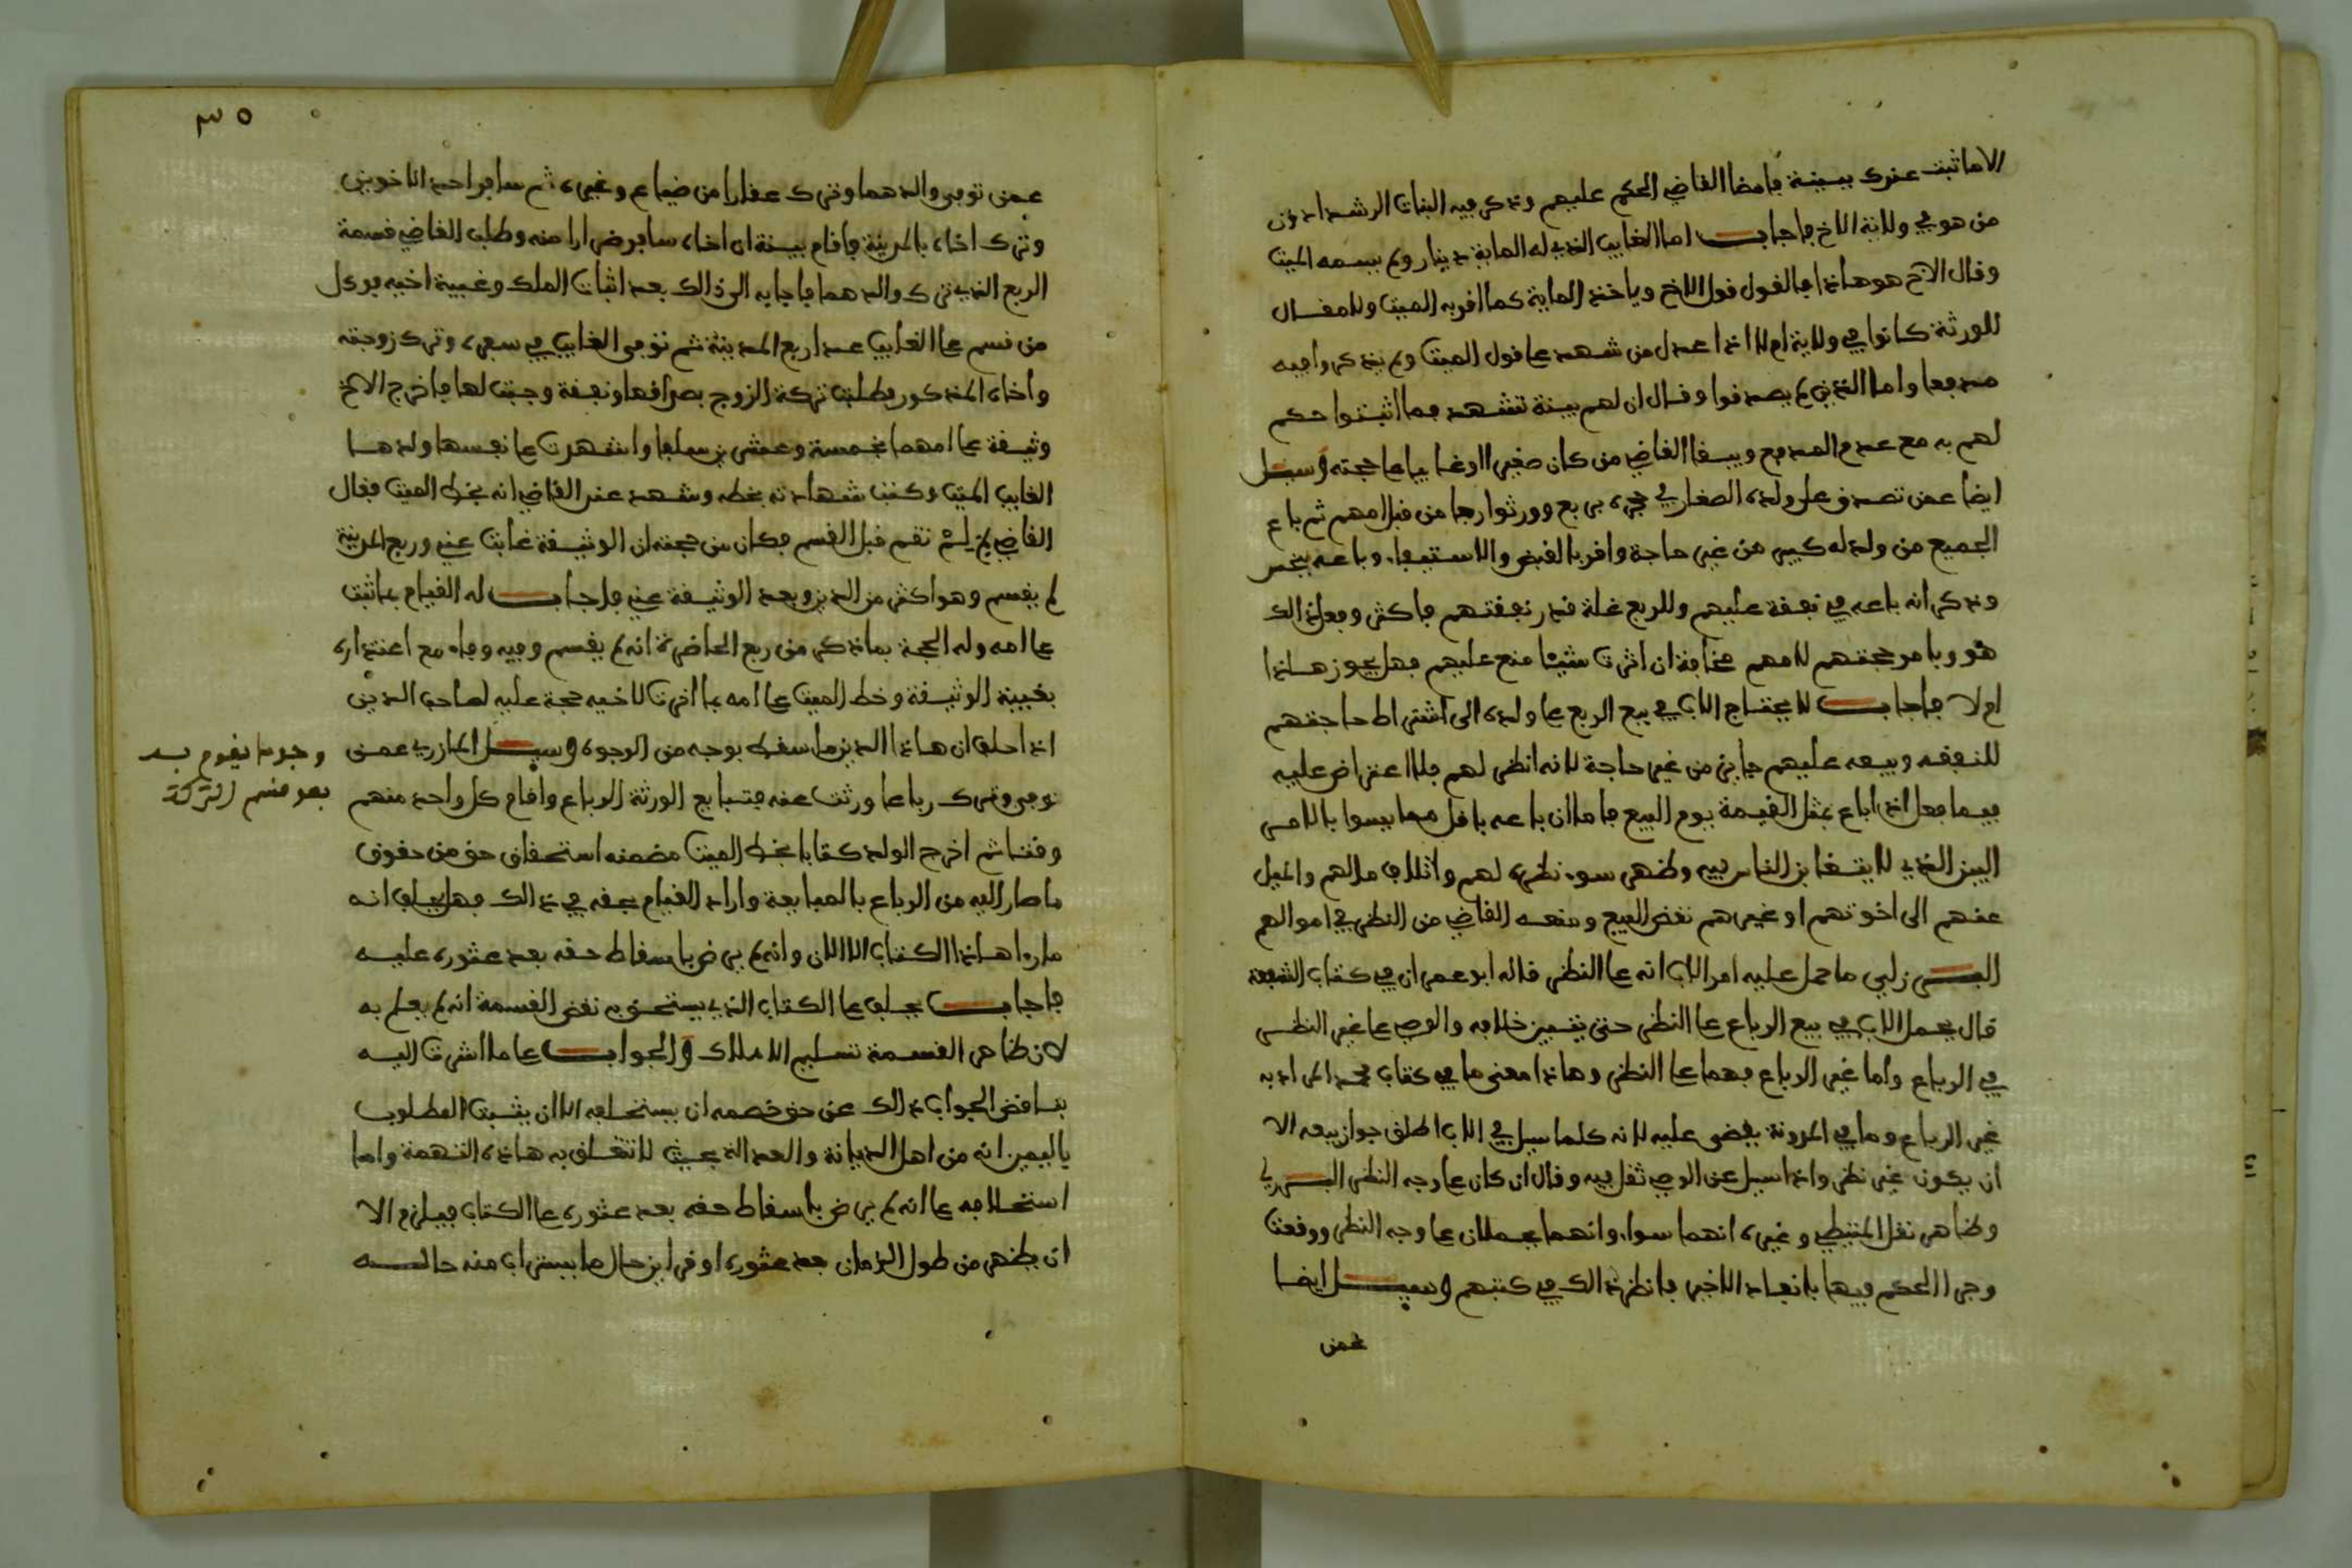 الا ما ثبت عندك ببينة فامضا القاضي الحكم عليهم وذكر فيه البنات الرشدا دون
من هو في ولاية الاخ فاجاب اما الغايب الذي له الماية دينار ولم يسمه الميت
وقال الاخ هو هاذا فالقول قول الاخ وياخذ الماية كما اقر به الميت ولا مقال
للورثة كانوا في ولاية ام لا اذا عدل من شهد على قول الميت ولم يذكروا فيه
مدفعا واما الذين لم يصدقوا وقال ان لهم بينة تشهد فما اثبتوا حكم
لهم به مع عدم المدفع ويبقا القاضي من كان صغيرا او غايبا على حجته وسيل
ايضا عمن تصدق على ولده الصغار في حجره بربع وورثوا ربعا من قبل امهم ثم باع
الجميع من ولد له كبير من غير حاجة واقر بالقبض والاستيفاء وباعه
وذكر انه باعه في نفقة عليهم وللربع غلة قدر نفقتهم فاكثر وفعل ذالك
هو لامهم مخافة ان اثرت شيئا منع عليهم فهل يجوز هاذا
ام لا فاجاب لا يحتاج الاب في بيع الربع على ولده الى اشتراط حاجتهم
للنفقة وبيعه عليهم جايز من غير حاجة لانه انظر لهم فلا اعتراض عليه
فيما فعل اذا باع بمثل القيمة يوم البيع فاما ان باعه باقل مما يسوا بالامر
البين الذي لا يتغابن الناس فيه وظهر سوء نظره لهم واتلاف مالهم والميل
عنهم الى اخوتهم او غيرهم نقض البيع ومنعه القاضي من النظر في اموالهم
البرزلي ما حمل عليه امر الاب انه على النظر قاله ابو عمران في كتاب الشفعة
قال يحمل الاب في بيع الرباع على النظر حتى يتبين خلافه والوصي على غير النظر
في الرباع واما غير الرباع فهما على النظر وهاذا معنى ما في كتاب محمد المراد به
غير الرباع وما في المدونة يقضى عليه لانه كلما سيل في الاب اطلق جواز بيعه الا
ان يكون غير نظر واذا سيل عن الوصي ثقل فيه وقال ان كان على وجه النظر البرزلي
وظاهر نقل المتيطي وغيره انهما سواء وانهما يحملان على وجه النظر ووقعت
وجرا الحكم فيها بانفاد الاخير فانظر ذالك في كتبهم وسيل ايضا
عمن
٣٥
عمن توفي والدهما وترك عقارا من ضياع وغيره ثم سافر احد الاخوين
وترك اخاه بالمدينة فاقام بينة ان اخاه سافر منه وطلب القاضي قسمة
الربع الذي ترك والدهما فاجابه الى ذالك بعد اثبات الملك وغيبة اخيه فوكل
من قسم على الغايب عدا ربع المدينة ثم توفي الغايب في سفره وترك زوجته
واخاه المذكور فطلبت تركة الزوج بصداقها ونفقة وجبت لها فاخرج الاخ
وثيقة على امهما بخمسة وعشرين سلفا واشهدت على نفسها ولدها
الغايب الميت وكتب شهادته بخطه وشهد عند القاضي انه بخط الميت فقال
القاضي لم لم تقم قبل القسم فكان من حجته ان الوثيقة غابت عني وربع المدينة
لم يقسم وهو اكثر من الدين وبعد الوثيقة عني فاجاب له القيام بما ثبت
على امه وله الحجة بما ذكر من ربع الحاضرة انه لم يقسم وفيه وفاء مع اعتذاره
بغيبة الوثيقة وخط الميت على امه بما اقرت لاخيه حجة عليه لصاحب الدين
اذا حلف ان هاذا الدين ما سقط بوجه من الوجوه وسيل المازري عمن
توفي وترك رباعا ورثت عنه فتبايع الورثة الرباع واقام كل واحد منهم
وقتا ثم اخرج الولد كتابا بخط الميت مضمنه استحقاق حق من حقوق
ما صار اليه من الرباع بالمبايعة واراد القيام بحقه في ذالك فهل يحلف انه
ما را هاذا الكتاب الا الان وانه لم يرض باسقاط حقه بعد عثوره عليه
فاجاب يحلف على الكتاب الذي يستحق به نقض القسمة انه لم يعلم به
لان ظاهر القسمة تسليم الاملاك والجواب على ما اشرت اليه
بتناقض الجواب ذالك عن حق خصمه ان يستحلفه الا ان يثبت المطلوب
باليمين انه من اهل الديانة والعدالة بحيث لا تتعلق به هاذه التهمة واما
استحلافه على انه لم يرض باسقاط حقه بعد عثوره على الكتاب فيلزم الا
ان يظهر من طول الزمان بعد عثوره او قراين حال ما يستراب منه حاله
وجه ما يقوم به
بعد قسم التركة